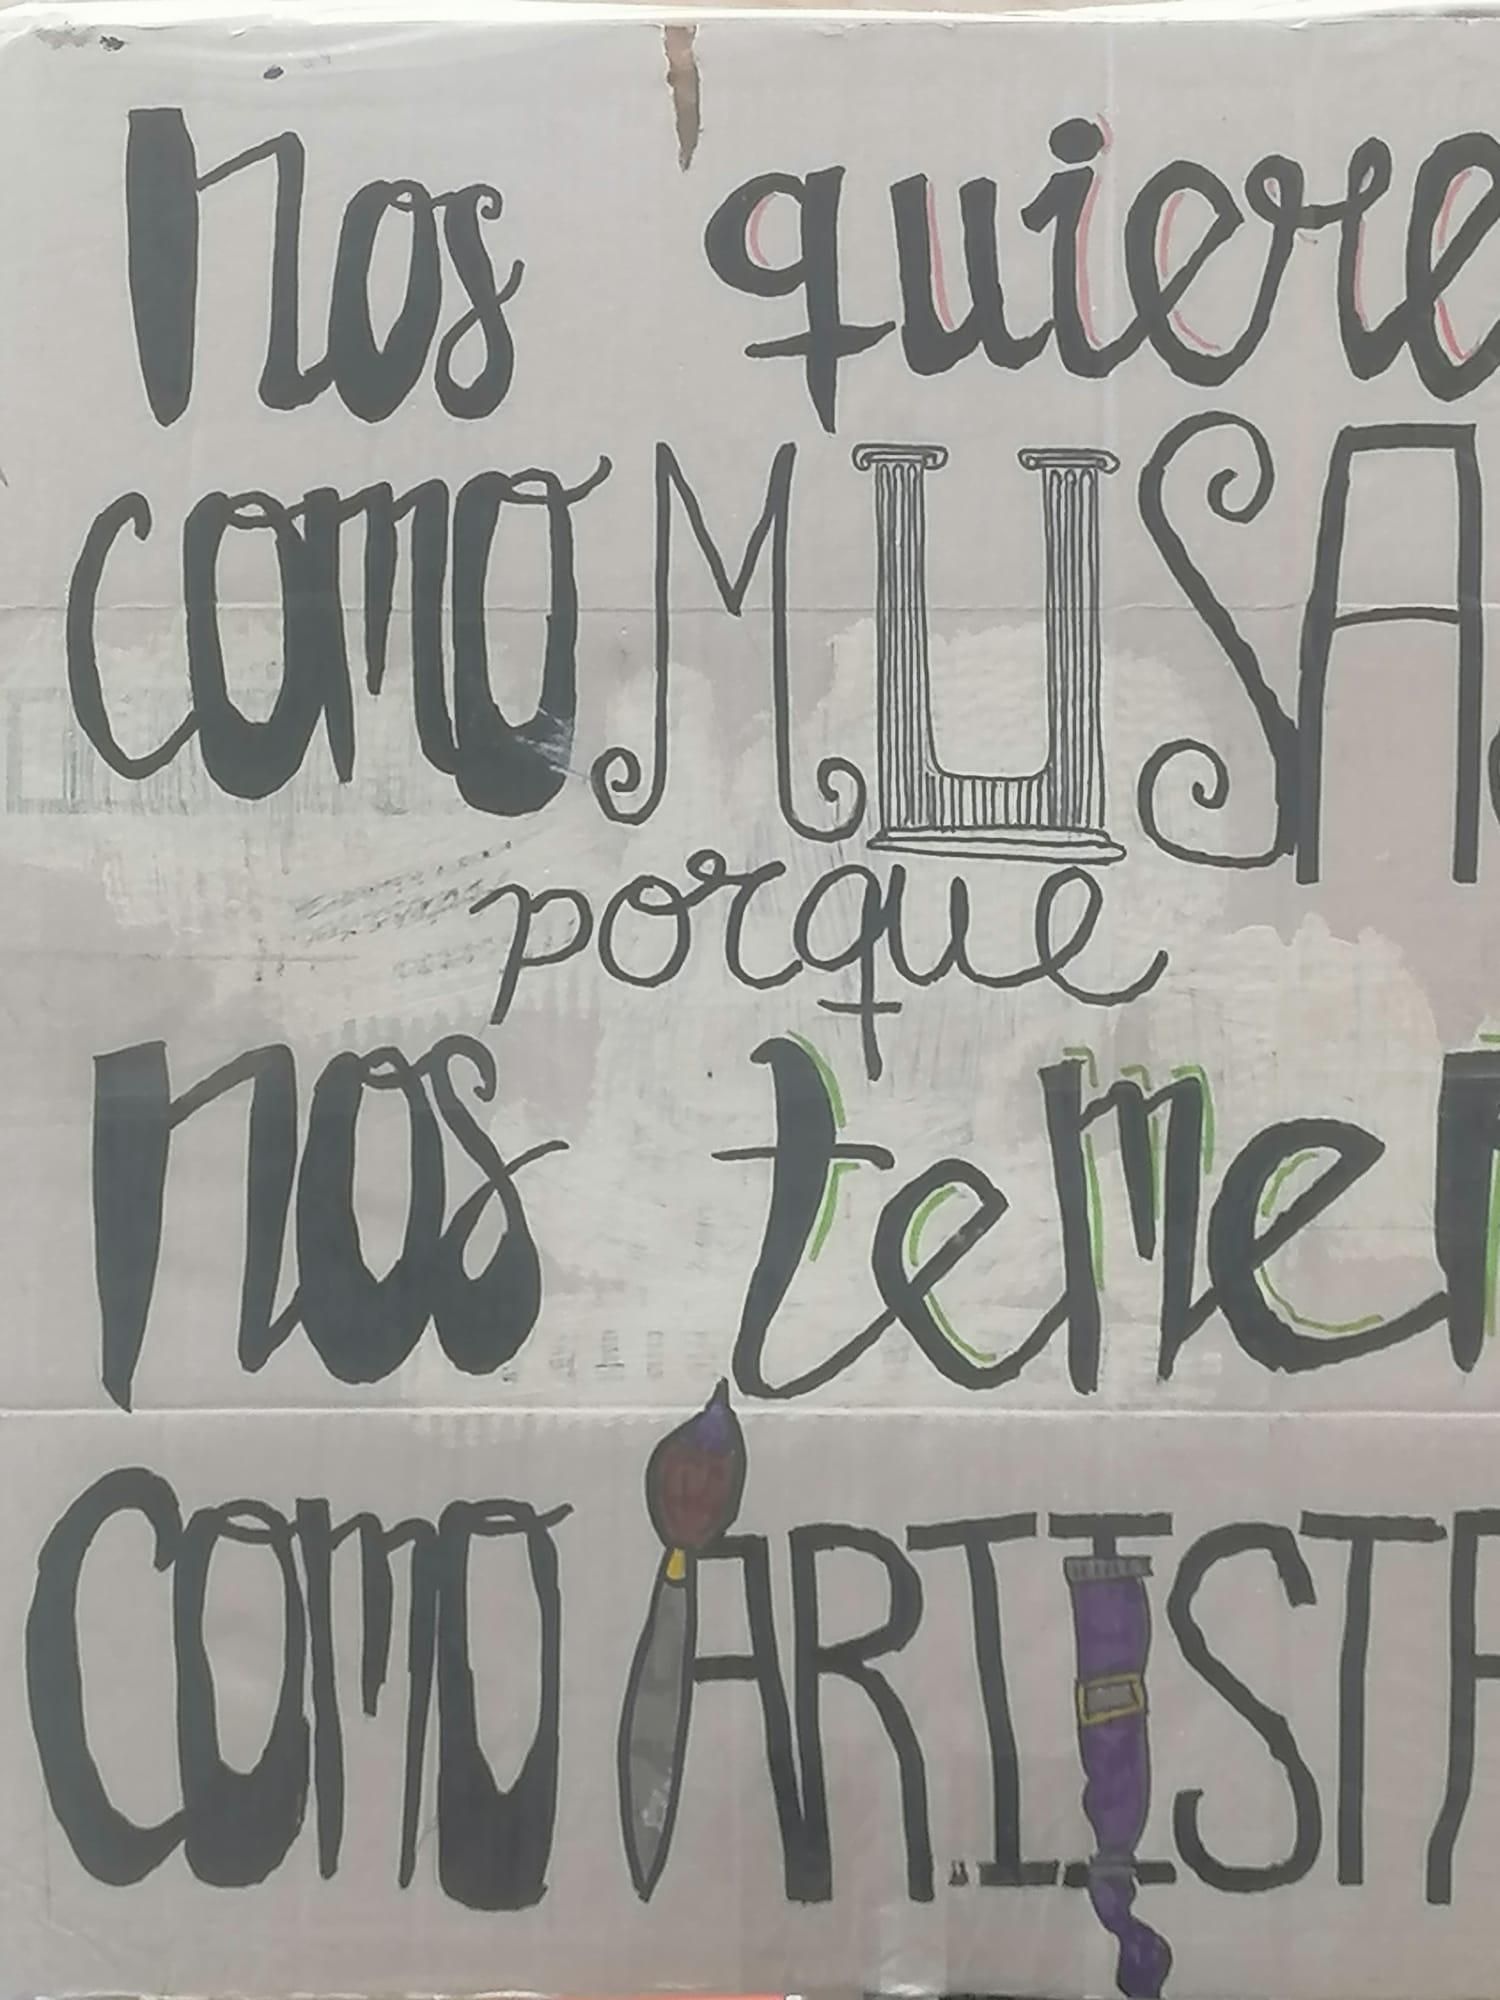 Nos quiere
como MUSA
porque
nos temen
como ARTISTA